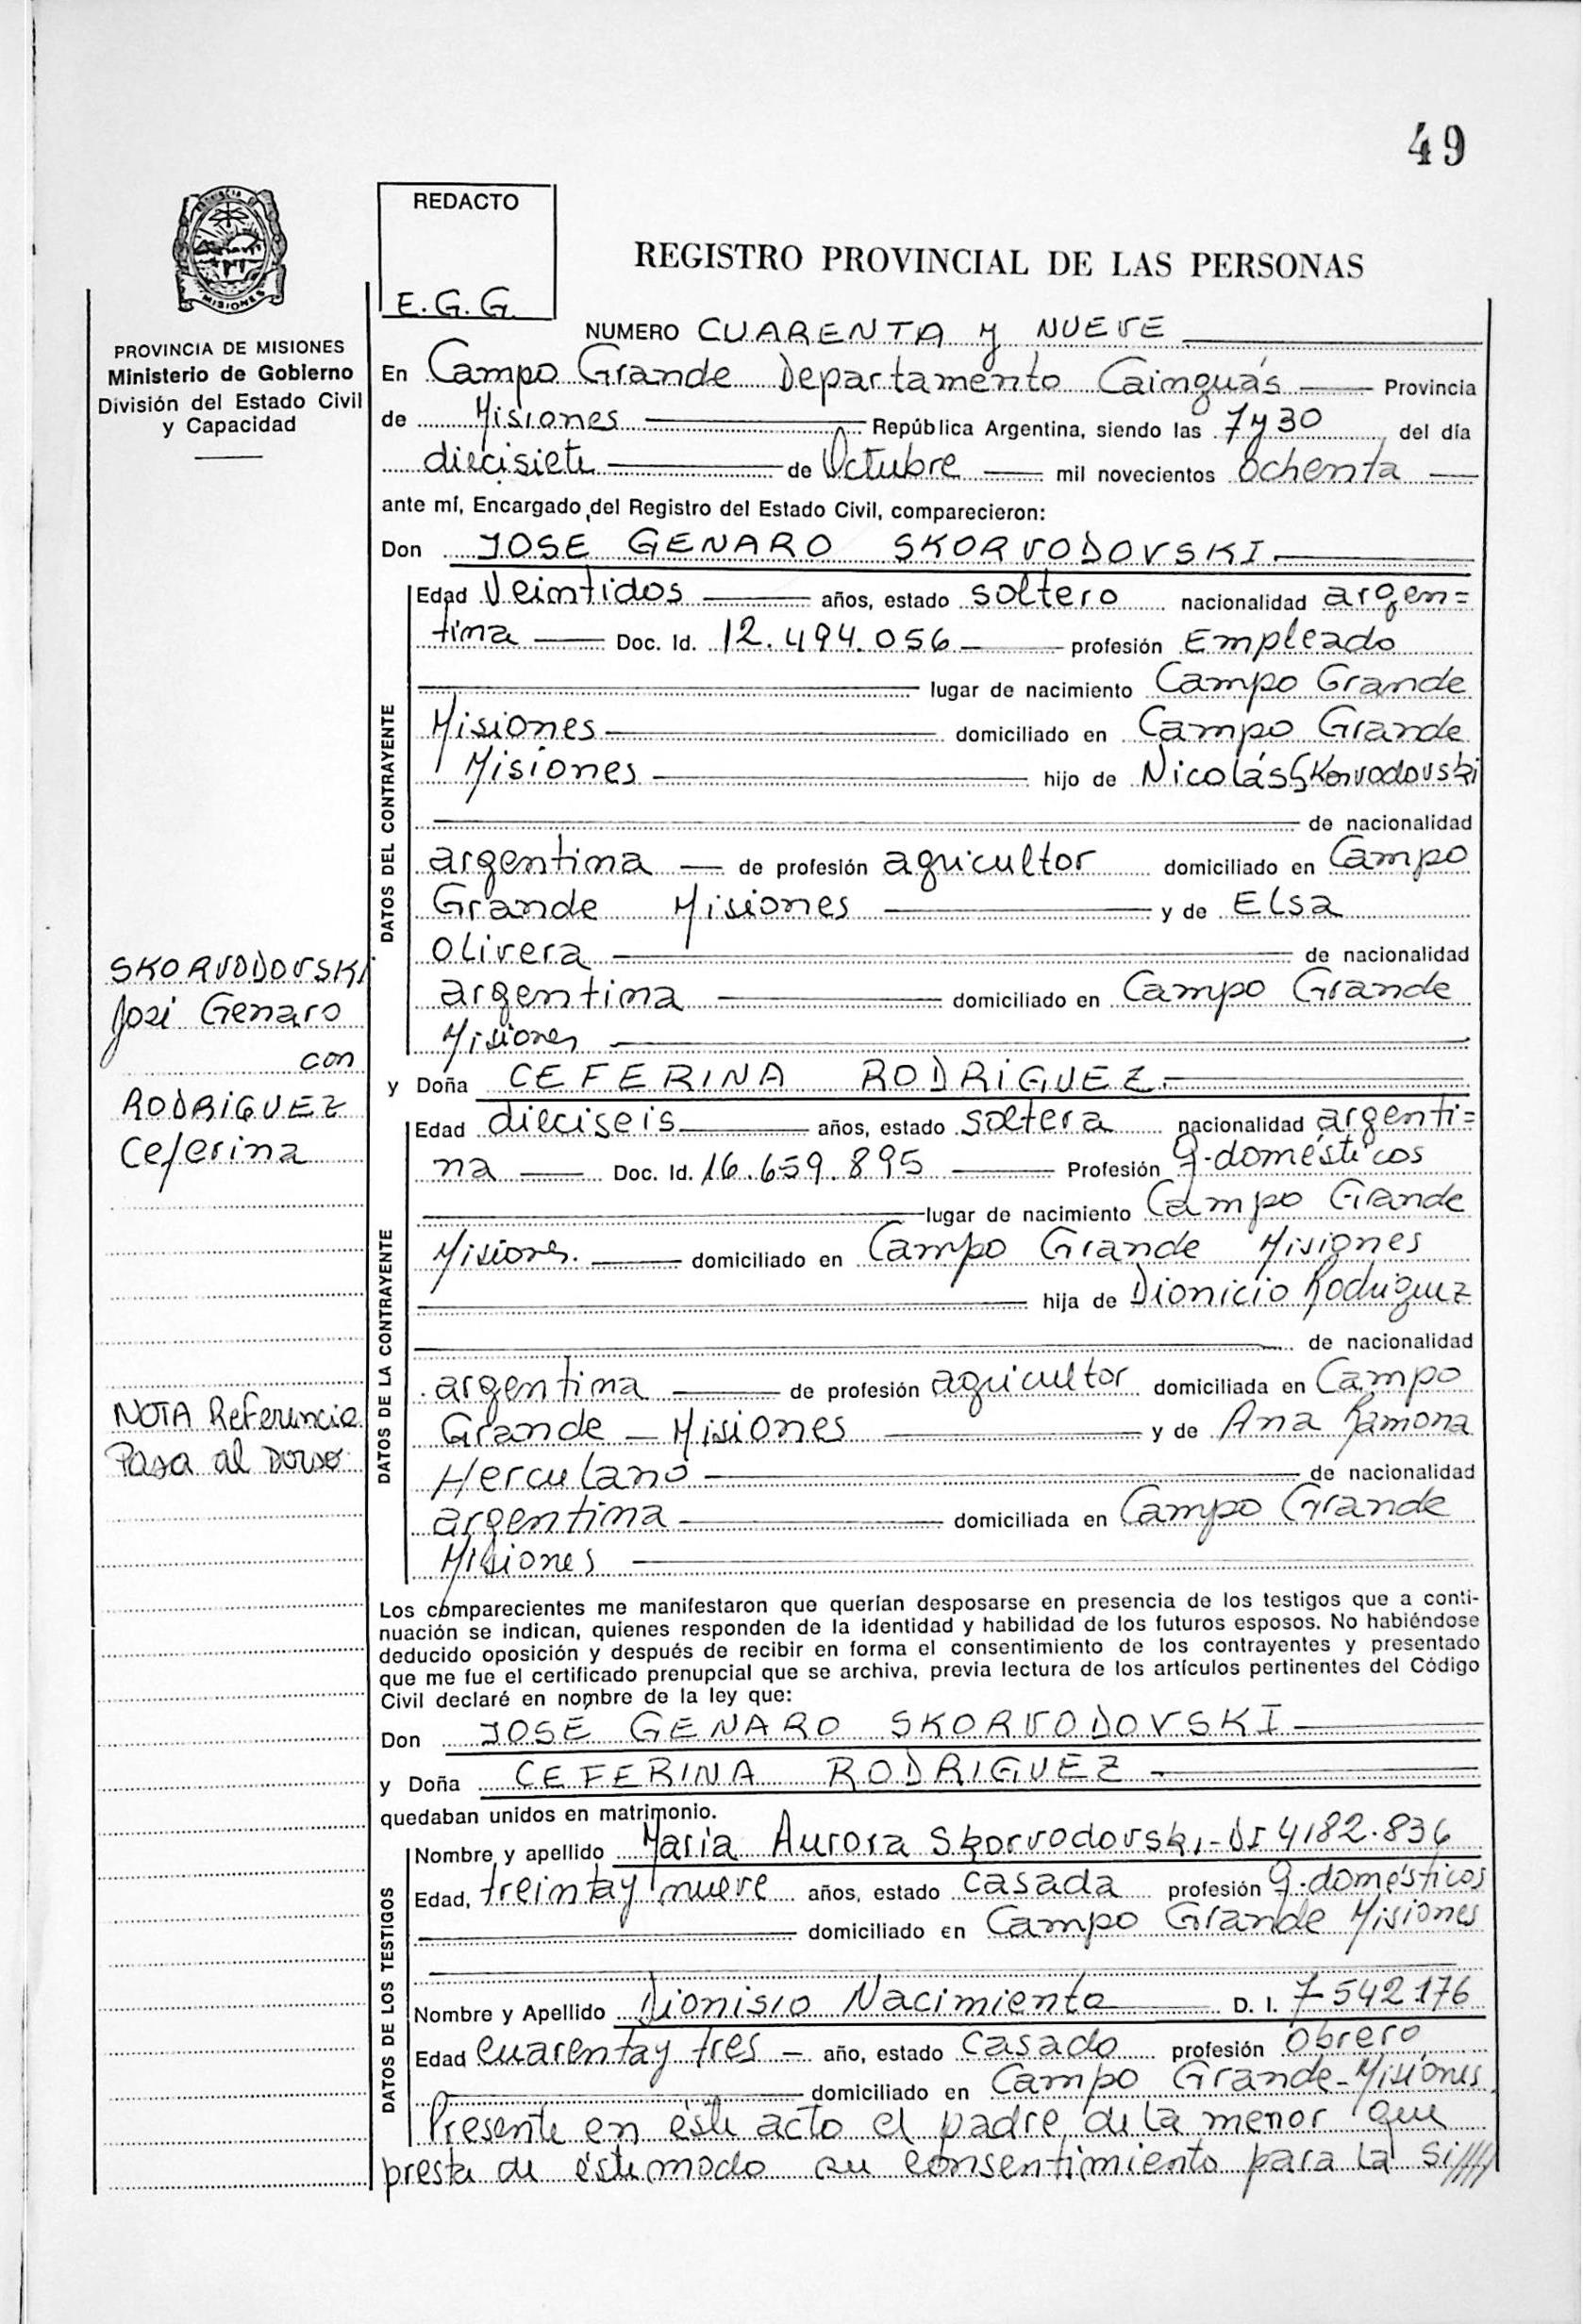 49
REDACTO
E.G.G.
REGISTRO PROVINCIAL DE LAS PERSONAS
MISIONES
PROVINCIA DE MISIONES
Ministerio de Gobierno
División del Estado Civil
y Capacidad
NUMERO CUARENTA y NUEVE
En Campo Grande Departamento Cainguás Provincia
de Misiones República Argentina, siendo las 7 y 30 del día
diecisiete de Octubre mil novecientos ochenta
ante mí, Encargado del Registro del Estado Civil, comparecieron:
Don JOSE GENARO SKORVODOVSKI
DATOS DEL CONTRAYENTE
Edad Veintidos años, estado soltero nacionalidad argen=
tina Doc. Id. 12.494.056 profesión Empleado
lugar de nacimiento Campo Grande
Misiones domiciliado en Campo Grande
Misiones hijo de Nicolás Skorvodovski
de nacionalidad
argentina de profesión agricultor domiciliado en Campo
Grande Misiones y de Elsa
Olivera de nacionalidad
argentina domiciliado en Campo Grande
Misiones
SKORVODOVSKI
José Genaro
con
RODRIGUEZ
Ceferina
y Doña CEFERINA RODRIGUEZ
DATOS DE LA CONTRAYENTE
Edad dieciseis años, estado soltera nacionalidad argenti=
na Doc. Id. 16.659.895 Profesión q.domésticos
lugar de nacimiento Campo Grande
Misiones. domiciliado en Campo Grande Misiones
hija de Dionicio Rodriguez
de nacionalidad
argentina de profesión agricultor domiciliada en Campo
Grande - Misiones y de Ana Ramona
Herculano de nacionalidad
argentina domiciliada en Campo Grande
Misiones
NOTA Referencia
Pasa al Dorso
Los comparecientes me manifestaron que querían desposarse en presencia de los testigos que a conti-
nuación se indican, quienes responden de la identidad y habilidad de los futuros esposos. No habiéndose
deducido oposición y después de recibir en forma el consentimiento de los contrayentes y presentado
que me fue el certificado prenupcial que se archiva, previa lectura de los artículos pertinentes del Código
Civil declaré en nombre de la ley que:
Don JOSÉ GENARO SKORVODOVSKI
y Doña CEFERINA RODRIGUEZ
quedaban unidos en matrimonio.
DATOS DE LOS TESTIGOS
Nombre y apellido Maria Aurora Skorvodovski-DI 4182.836
Edad, treinta y nueve años, estado casada profesión q.domésticos
domiciliado en Campo Grande Misiones
Nombre y Apellido Dionisio Nacimiento D. I. 7542176
Edad cuarenta y tres - año, estado casado profesión obrero
domiciliado en Campo Grande-Misiones
Presente en éste acto el padre de la menor que
presta de éste modo su consentimiento para la si////